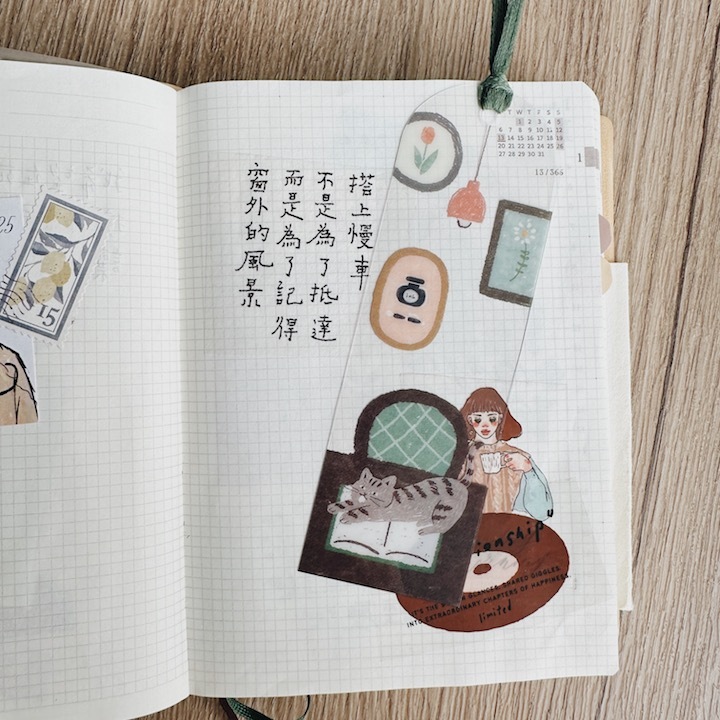 T W T F S S
1 2 3 4 5
6 7 8 9 10 11 12
13 14 15 16 17 18 19
20 21 22 23 24 25 26
27 28 29 30 31
1
13/365
搭上慢車
不是為了抵達
而是為了記得
窗外的風景
25
15
ionship
IT'S THE GLANCES, SHARED GIGGLES
INTO EXTRAORDINARY CHAPTERS OF HAPPINESS.
limited